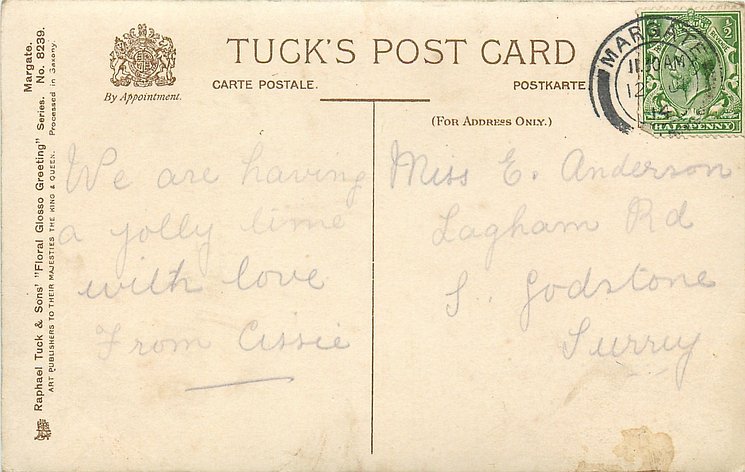 TUCK'S POST CARD
By Appointment.
CARTE POSTALE.
POSTKARTE
(FOR ADDRESS ONLY.)
We are having
a jolly time
with love
From Cissie
Miss E. Anderson
Lagham Rd
S. Godstone
Surrey
MARGATE
11.30AM
12
14
HALFPENNY
Raphael Tuck & Sons' "Floral Glosso Greeting" Series. Margate. No. 8239.
ART PUBLISHERS TO THEIR MAJESTIES THE KING & QUEEN. Processed in Saxony.